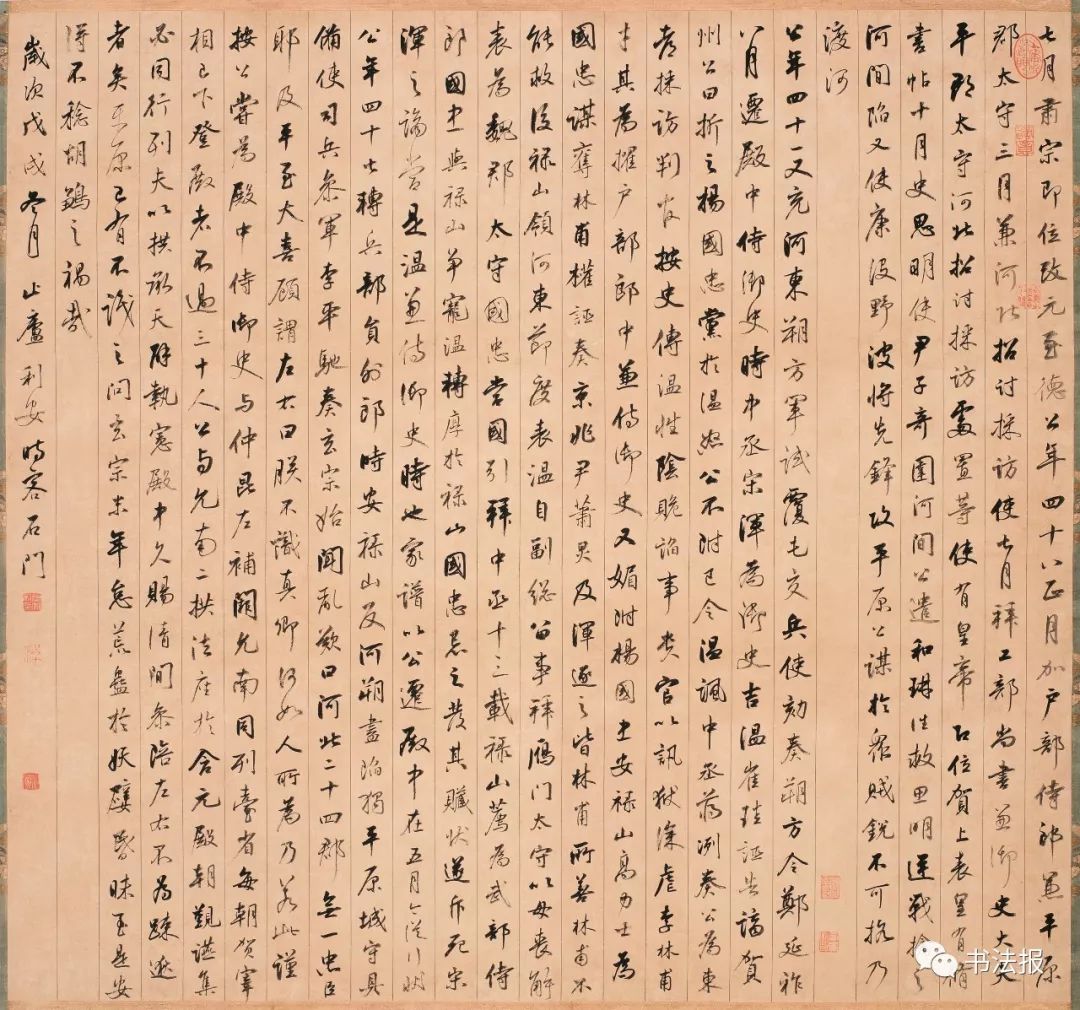 七月肃宗即位改元至德公年四十八正月加户部侍郎兼平原
郡太守三月兼河北招讨採访使七月拜工部尚書兼御史大夫
平郡太守河北招讨採访處置等使有皇帝即位賀上表皇有補
書帖十月史思明使尹子奇圍河間公遣和琳往救思明逆戰擒之
河間陷又使康没野波將先鋒攻平原公謀於眾賊銳不可抗乃
渡河
公年四十一又充河東朔方軍試覆屯交兵使劾奏朔方令鄭延祚
八月遷殿中侍御史時中丞宋渾為御史吉溫崔珪誣告謫賀
州公曰折之楊國忠黨於溫怒公不附己令溫諷中丞蔣洌奏公為東
都採访判官按史傳溫性陰詭諂事貴官以訊獄深虐李林甫
才其為擢户部郎中兼侍御史又媚附楊國忠安禄山高力士為
國忠謀奪林甫權誣奏京兆尹蕭炅及渾逐之皆林甫所善林甫不
能救後禄山領河東節度表溫自副總留事拜鴈门太守以母喪解
表為魏郡太守國忠當國引拜中丞十三載禄山薦為武部侍
郎國忠與禄山爭寵溫轉厚於禄山國忠忌之發其贓狀遂斥死宋
渾之謫當是溫兼侍御史時也家譜以公遷殿中在五月
公年四十七轉兵部員外郎時安禄山反河朔盡陷獨平原城守具
備使司兵參軍李平馳奏玄宗始聞亂歎曰河北二十四郡無一忠臣
耶及平至大喜顧謂左右曰朕不識真卿何如人所為乃若此謹
按公嘗為殿中侍御史与仲昆左補闕允南同列臺省每朝賀宰
相已下登殿者不過三十人公与允南二拱法座於含元殿朝覲讌集
必同行列夫以拱承天辟執憲殿中久賜清閒參陪左右不為踈遠
者矣平原已有不識之问玄宗末年怠荒蠱於妖孽昏昧至是安
得不稔胡鷄之禍哉
歲次戊戌冬月止廬利安時客石门
书法报